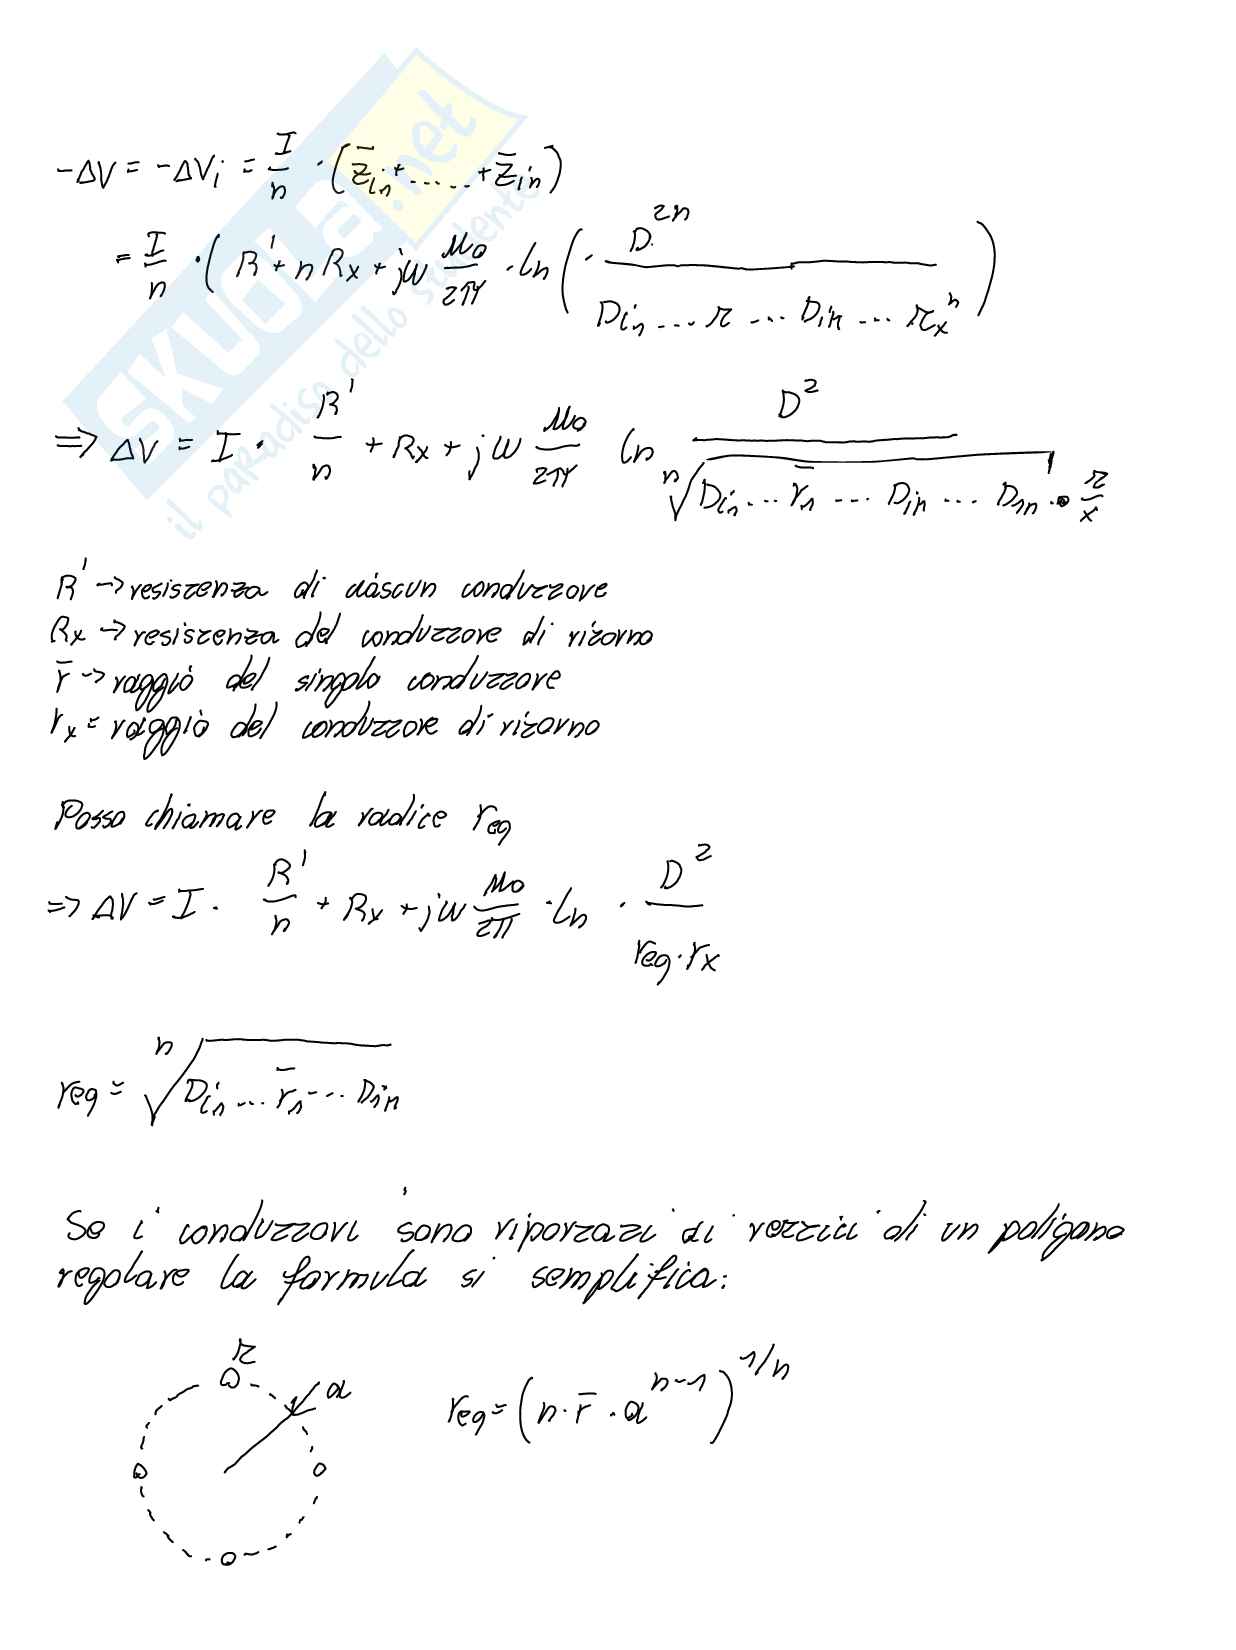 SKUOLA.net
il paradiso dello studente
-ΔV = -ΔVi = I/n · (z̄i1 + ...... + z̄in)
= I/n · ( R' + n Rx + jω μ0/2π · ln ( · D^2n / Di1 .... r ... Din ... rx^n )
=> ΔV = I · R'/n + Rx + jω μ0/2π ln D^2 / ⁿ√(Di1 ... r̄1 .... Din ... D1n · r/x
R' -> resistenza di ciascun conduttore
Rx -> resistenza del conduttore di ritorno
r̄ -> raggio del singolo conduttore
rx = raggio del conduttore di ritorno
Posso chiamare la radice req
=> ΔV = I · R'/n + Rx + jω μ0/2π · ln · D^2 / req · rx
req = ⁿ√(Di1 ... r̄1 ... D1n
Se i conduttori sono riportati ai vertici di un poligono
regolare la formula si semplifica:
r
a
req = (n · r̄ · a^n-1)^1/n